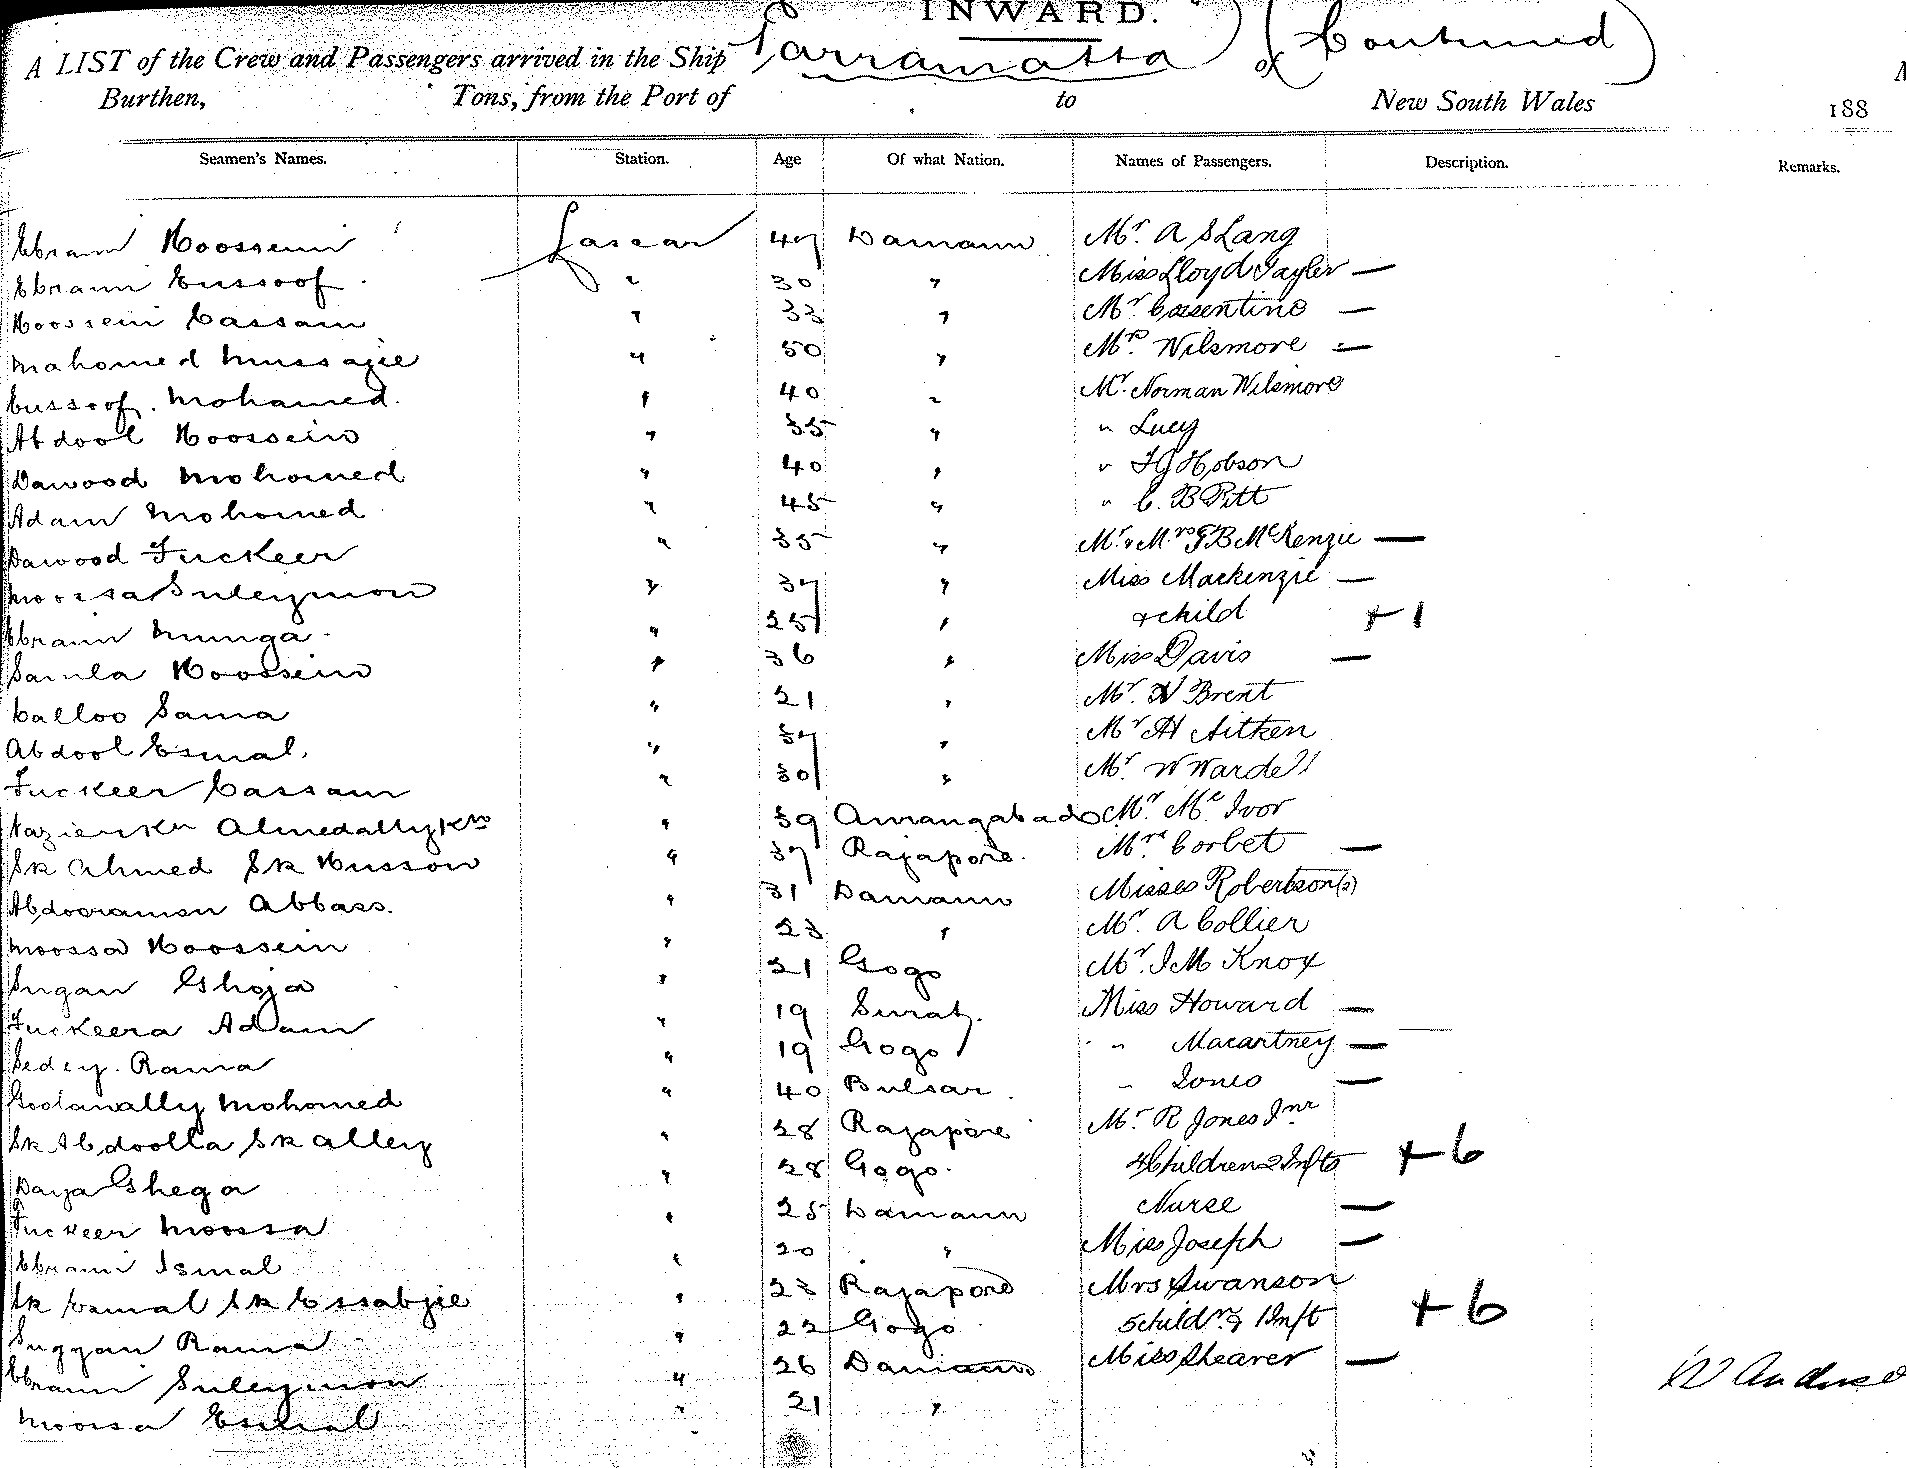 INWARD.
A LIST of the Crew and Passengers arrived in the Ship Parramatta (Continued) of
Burthen, Tons, from the Port of to New South Wales 188
Seamen's Names. Station. Age Of what Nation. Names of Passengers. Description. Remarks.
Ebram Hoossein Lascar 47 Damann Mr. A S Lang
Ebram Eussoof " 30 " Miss Lloyd Tayler —
Hoossein Cassam " 33 " Mr Cosentino —
Mahomed Mussajee " 50 " Mrs. Wilsmore —
Eussoof. Mohamed. " 40 " Mr. Norman Wilsmore
Abdool Hoossein " 35 " " Lucy
Dawood Mohomed " 40 " " Hobson
Adam Mohomed " 45 " " C. B Pitt
Dawood Fuckeer " 35 " Mr. & Mrs G B McKenzie —
Moossa Suleymon " 37 " Miss Mackenzie —
Ebram Munga " 25 " & child +1
Samla Hoossein " 36 " Miss Davis —
Calloo Sama " 21 " Mr. Brent
Abdool Esmal. " 37 " Mr H Aitken
Fuckeer Cassam " 30 " Mr. W Wardell
Almedally Kn " 39 Aurangabad Mr. Mc Ivor
Sk Ahmed Sk Husson " 37 Rajapore. Mrs Corbet —
Abdooramon Abbass. " 31 Damann Misses Robertson (2)
Moossa Hoossein " 23 " Mr. A Collier
Sugan Ghoja " 21 Gogo Mr. J M Knox
Fuckeera Adam " 19 Surat. Miss Howard —
Sedey. Rama " 19 Gogo " " Macartney —
Goolamally Mohomed " 40 Bulsar " Jones —
Sk Abdoolla Sk Alley " 28 Rajapore Mr. R Jones Jnr
Daya Ghega " 28 Gogo. 4 Children 2 Infts +6
Fuckeer Moossa " 25 Damann Nurse —
Ebram Ismal " 20 " Miss Joseph —
Sk Esmal Sk Essabjee " 23 Rajapore Mrs Swanson
Rama " 22 Gogo 5 childn. & 1 Inft +6
Ebram Suleymon " 26 Damann Miss Shearer —
Moossa Esmal " 21 "